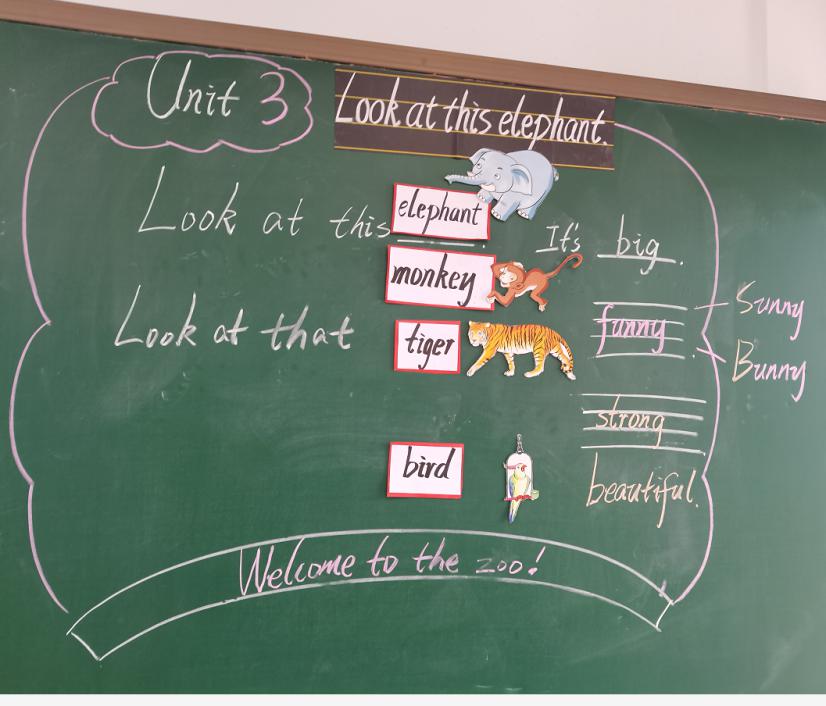 Unit 3
Look at this elephant.
Look at this elephant. It's big.
monkey
funny
Sunny
Look at that tiger
Bunny
strong
bird
beautiful.
Welcome to the zoo!